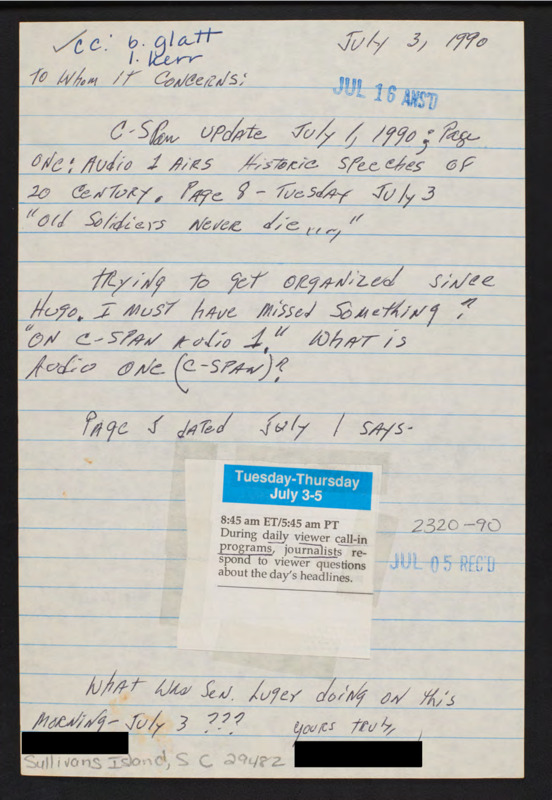 ✓cc: b. glatt
l. kerr
July 3, 1990
To Whom It Concerns:
JUL 16 ANS'D
C-Span update July 1, 1990; Page
One: Audio 1 Airs Historic Speeches of
20 Century. Page 8 - Tuesday July 3
"Old Solidiers never die...,"
Trying to get organized since
Hugo. I must have missed something?
"On C-SPAN Audio 1." What is
Audio One (C-SPAN)?
Page 5 dated July 1 says-
Tuesday-Thursday
July 3-5
8:45 am ET/5:45 am PT
During daily viewer call-in
programs, journalists re-
spond to viewer questions
about the day's headlines.
2320-90
JUL 05 REC'D
What was Sen. Luger doing on this
morning - July 3 ???
Yours truly,
Sullivans Island, S C 29482